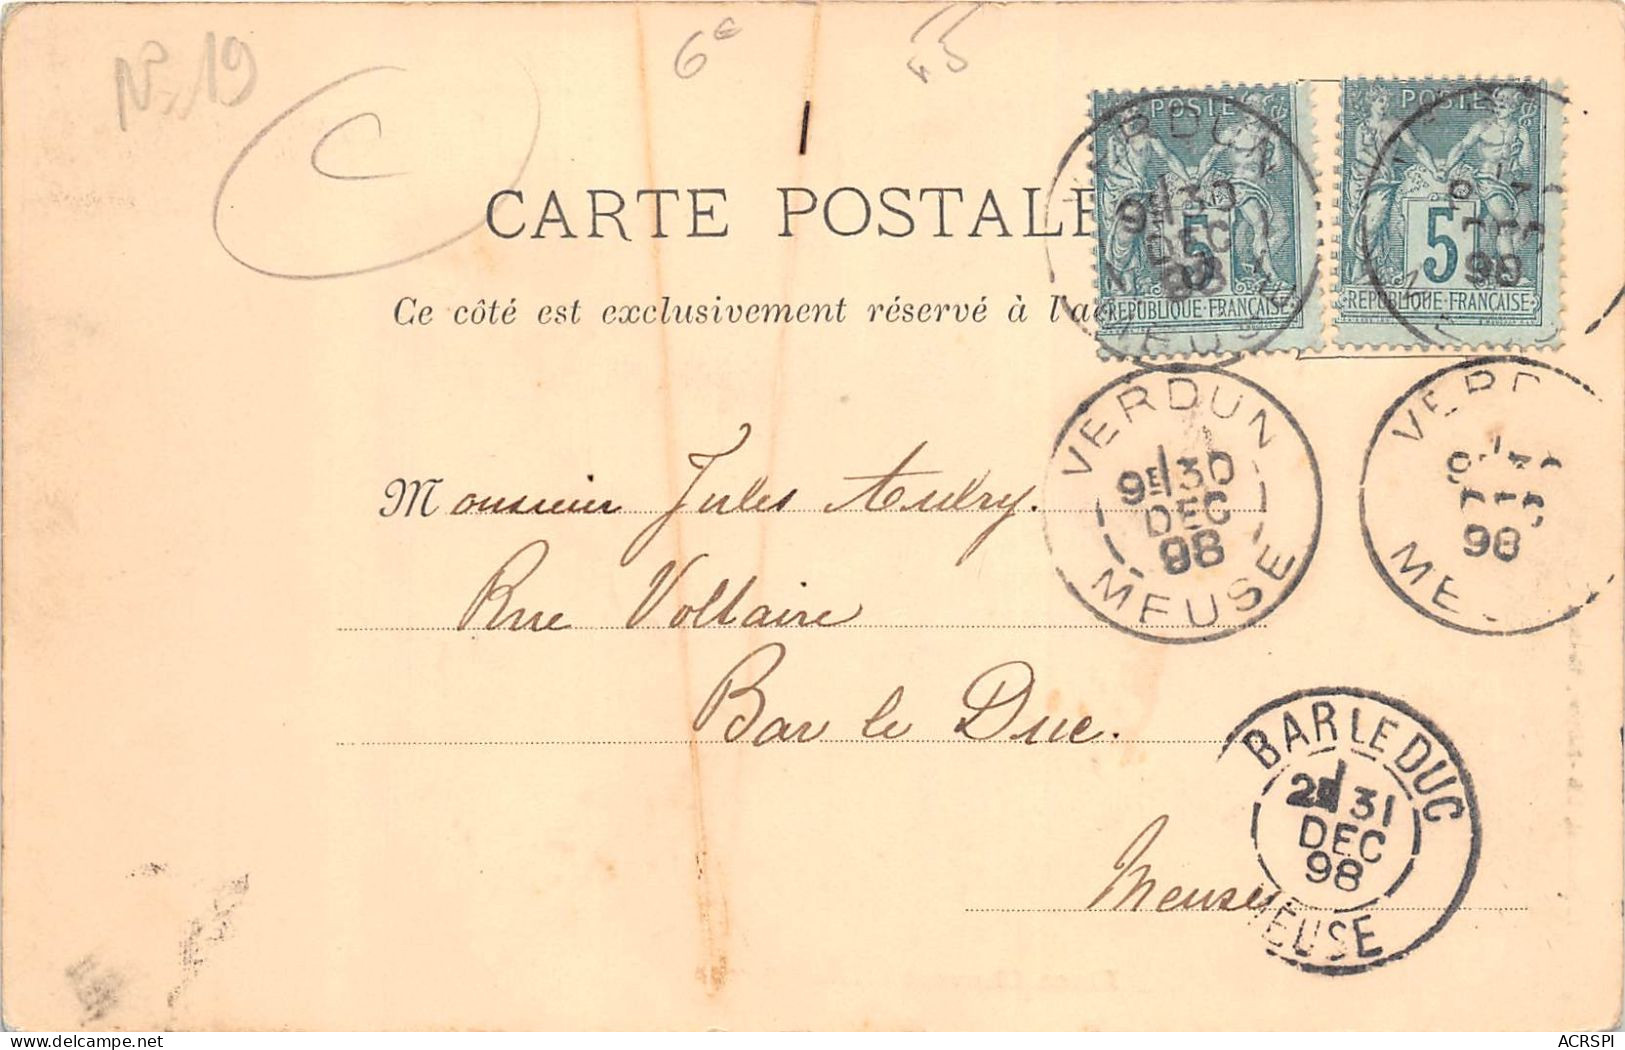 No 19
6e
45
C
CARTE POSTALE
Ce côté est exclusivement réservé à l'a
POSTE
5
REPUBLIQUE FRANÇAISE
POSTE
5
REPUBLIQUE FRANÇAISE
VERDUN
9E 30
DEC
98
MEUSE
VERDUN
9E 30
DEC
98
MEUSE
98
Monsieur Jules Aubry.
Rue Voltaire
Bar le Duc.
Meuse
BAR LE DUC
2E 31
DEC
98
MEUSE
ACRSPI